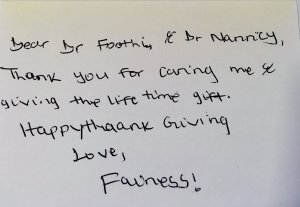 Dear Dr Foothi, & Dr Nanncy,
Thank you for caring me &
giving the life time gift.
Happythaank Giving
Love,
Fainess!